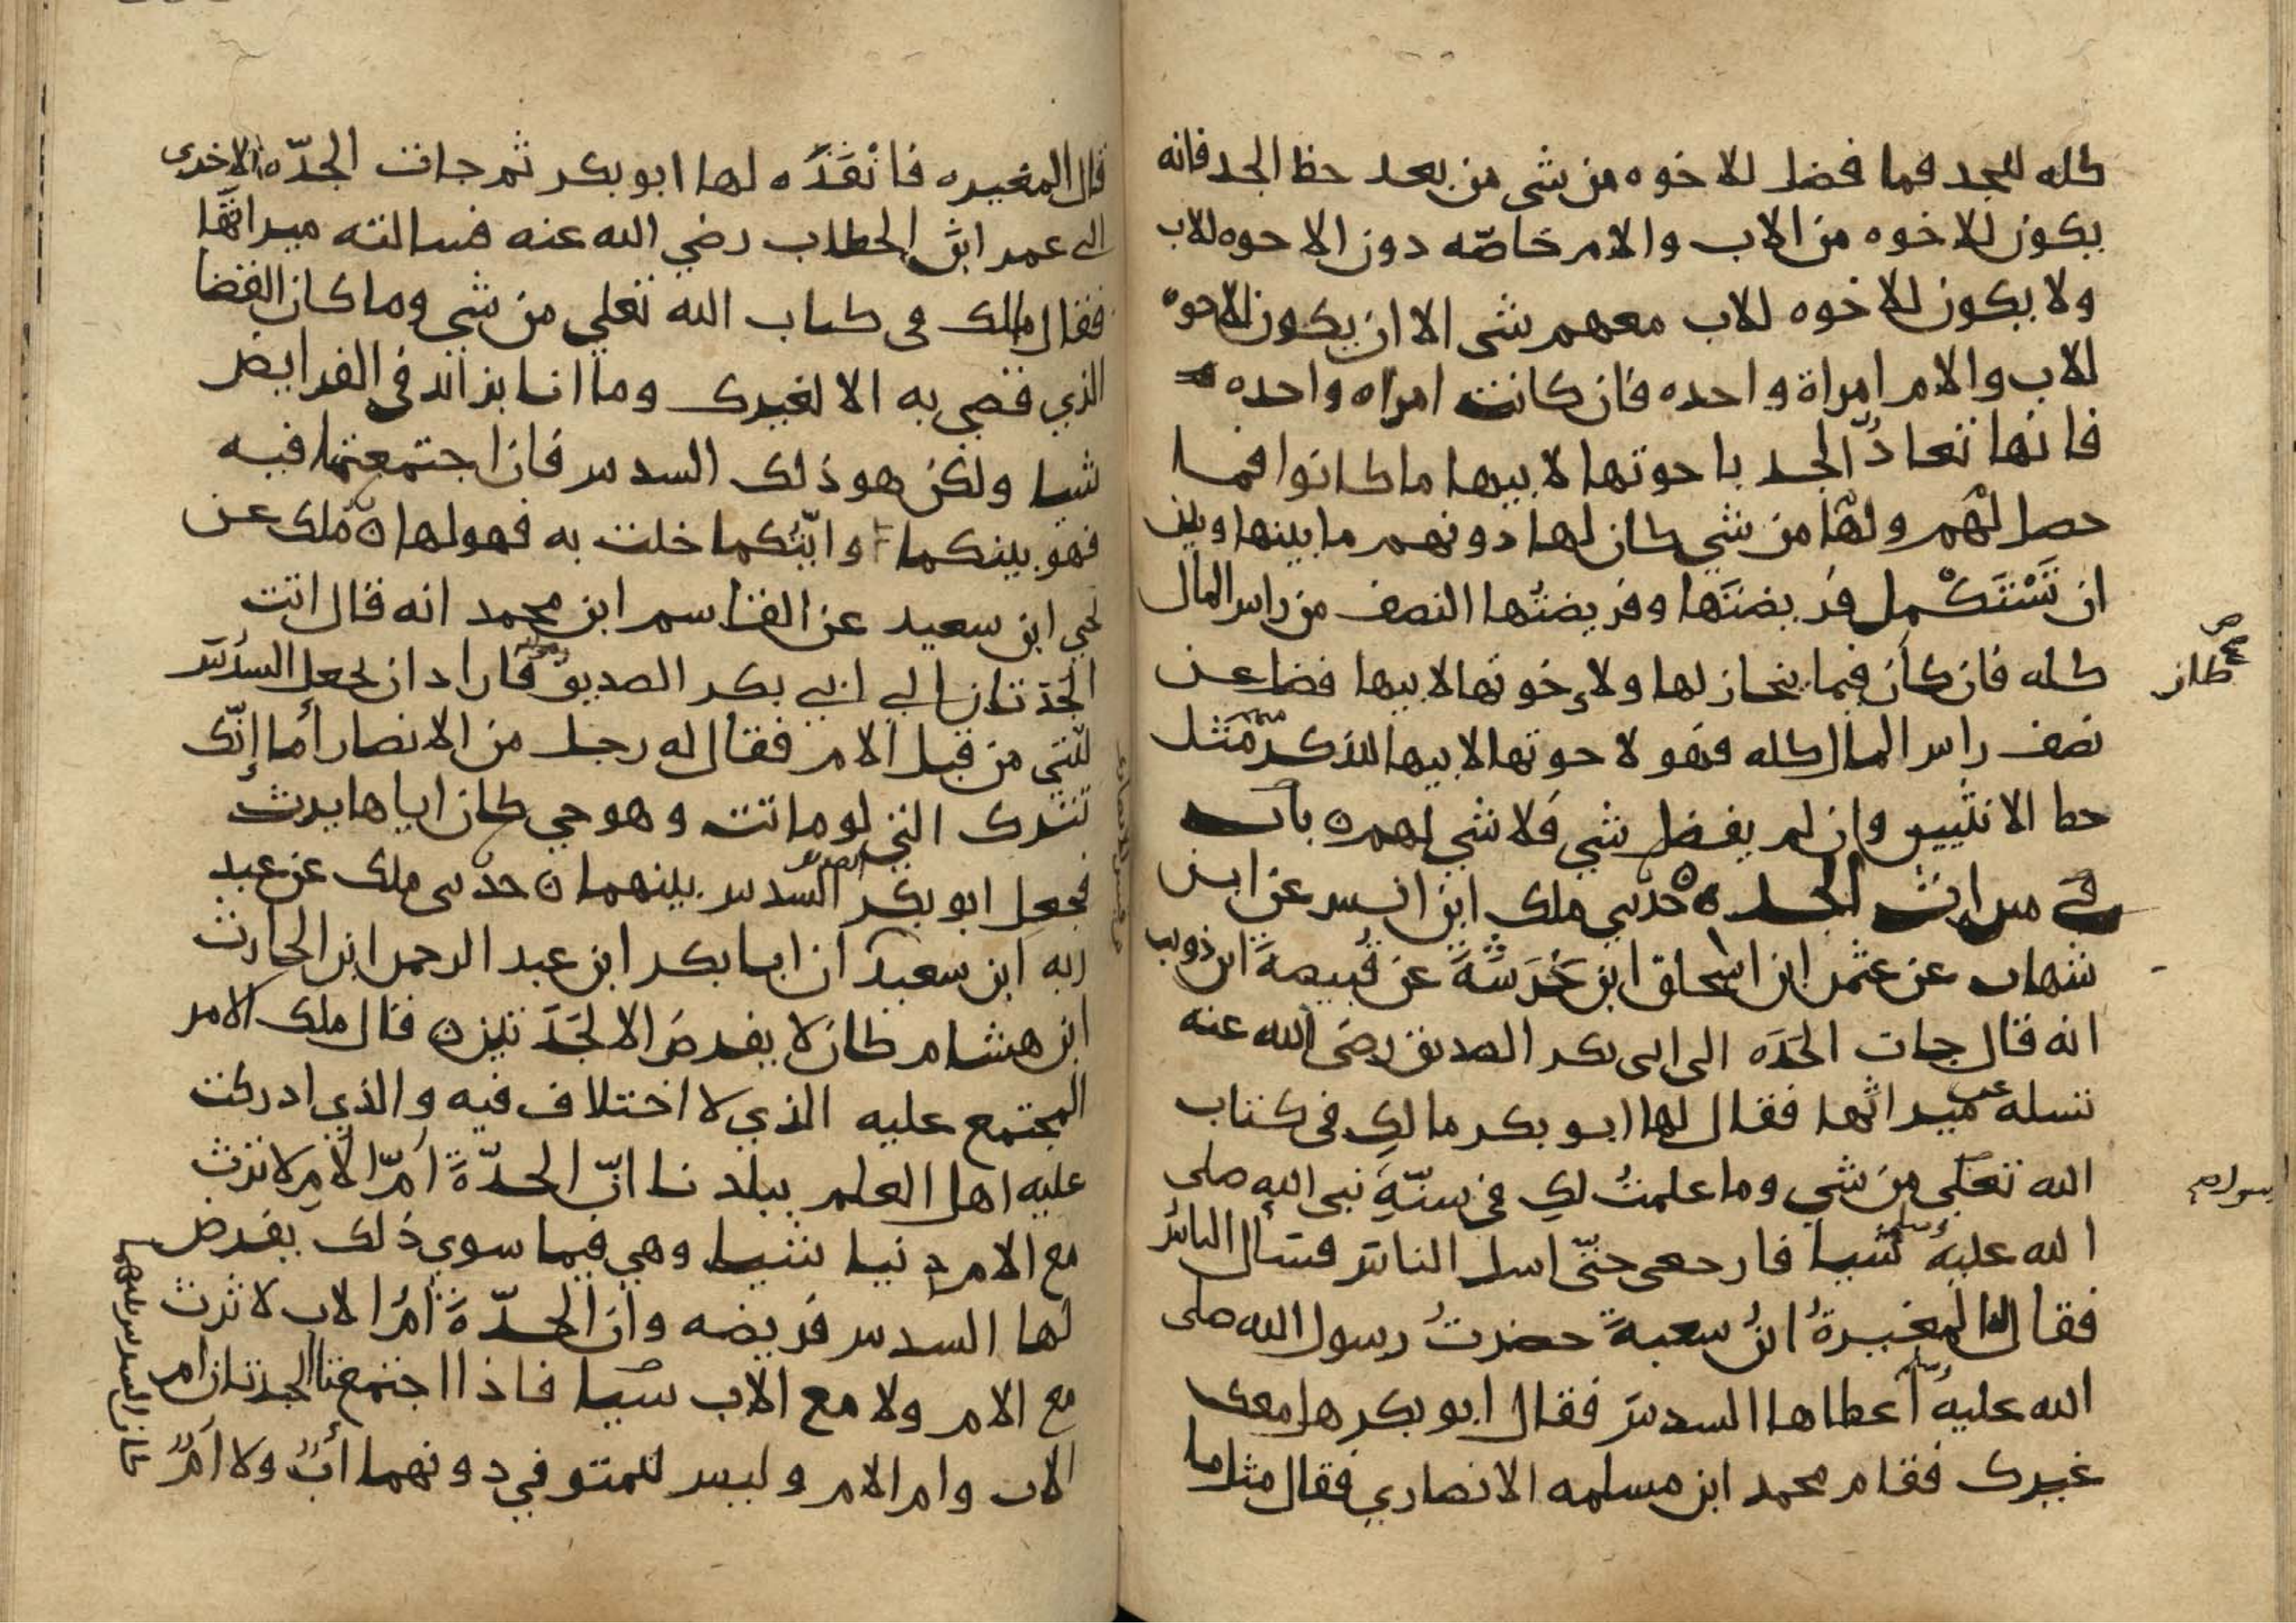 كله للجد فما فضل للاخوه من شى من بعد حظ الجد فانه
يكون للاخوه من الاب والام خاصّه دون الاخوه للاب
ولا يكون للاخوه للاب معهم شى الا ان يكون الاخوه
للاب والام امراة واحده فان كانت امراه واحده
فانها تعادُّ الجد باخوتها لابيها ما كانوا فما
حصل لهم ولها من شي كان لها دونهم ما بينها وبين
ان تَسْتَكْمل فريضتَها وفريضتُها النصف من راس المال
كله فان كان فيما ينحاز لها ولإخوتها لابيها فضل عن
نصف راس المال كله فهو لاخوتها لابيها للذكر مثل
حظ الانثيين وان لم يفضل شي فلا شي لهم ه باب
في ميراث الجده ه حدثني ملك ابن انس عن ابن
شهاب عن عثمن ابن اسحاق ابن خَرَشَةَ عن قُبيصةَ ابن ذويب
انه قال جات الجَدَه الى ابى بكر الصديق رضى الله عنه
تسله عن ميراثها فقال لها ابو بكر مالكِ فى كتاب
الله تعلى من شي وما علمتُ لكِ في سنّةِ نبى الله صلى
الله عليه وسلم شيا فارجعى حتّى اسل الناس فسال الناس
فقال المغيرةُ ابنُ شعبةَ حضرتُ رسول الله صلى
الله عليه وسلم أعطاها السدس فقال ابو بكر هل معك
غيرك فقام محمد ابن مسلمه الانصاري فقال مثل ما
كان
رسول الله
قال المغيره فانْفَذَه لها ابو بكر ثم جات الجدّه الاخرى
الى عمر ابن الخطاب رضي الله عنه فسالته ميراثَها
فقال مالك فى كتاب الله تعلي من شي وما كان القضا
الذي قضي به الا لغيرك وما انا بزائد فى الفرايض
شيا ولكن هو ذلك السدس فان اجتمعتما فيه
فهو بينكما وايّتُكما خلت به فهو لها ه ملك عن
يحيي ابن سعيد عن القاسم ابن محمد انه قال اتت
الجدّتان الي ابي بكر الصديق فاراد ان يجعل السُدُسَ
للّتي من قبل الام فقال له رجل من الانصار أما إنّك
تترك التي لو ماتت وهو حي كان اياها يرث
فجعل ابو بكر الصديق السدس بينهما ه حدثنى ملك عن عبد
ربه ابن سعيد ان ابا بكر ابن عبد الرحمن ابن الحارث
ابن هشام كان لا يفرض الا لجَدَّتين ه قال ملك الامر
المجتمع عليه الذي لا اختلاف فيه والذي ادركت
عليه اهل العلم ببلدنا انّ الجدّةَ امّ الأمِ لا ترث
مع الام دنيا شيا وهي فيما سوي ذلك يفرض
لها السدس فريضه وان الجدّةَ امُّ الاب لا ترث
مع الام ولا مع الاب شيا فاذا اجتمعتا الجدتان ام
الاب وام الام وليس للمتوفي دونهما أبٌ ولا امٌّ
كان السدس بينهما